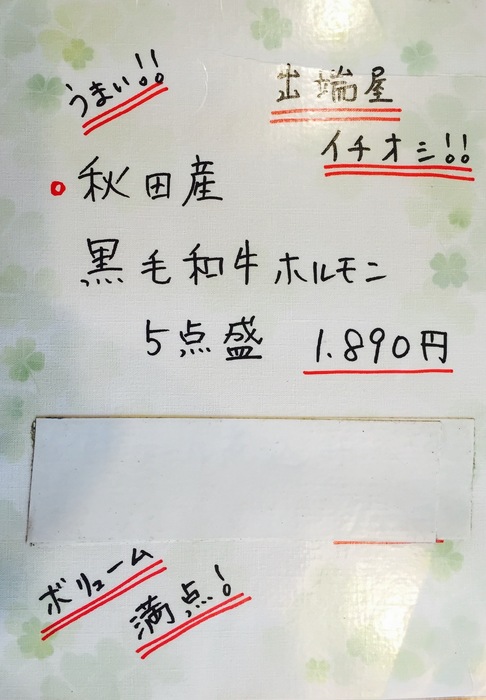 うまい!!
出端屋
イチオシ!!
秋田産
黒毛和牛ホルモン
5点盛 1.890円
ボリューム
満点!